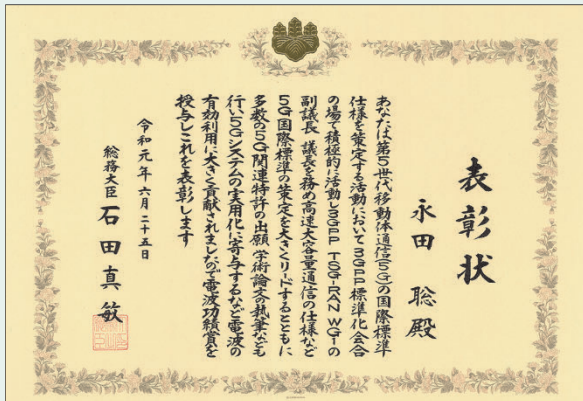 表彰状
永田 聡殿
あなたは第5世代移動体通信(5G)の国際標準
仕様を策定する活動において3GPP標準化会合
の場で積極的に活動し3GPP TSG-RAN WG1の
副議長 議長を務め高速大容量通信の仕様など
5G国際標準の策定を大きくリードするとともに
多数の5G関連特許の出願 学術論文の執筆なども
行い5Gシステムの実用化に寄与するなど電波の
有効利用に大きく貢献されましたので電波功績賞を
授与しこれを表彰します
令和元年六月二十五日
総務大臣 石田真敏